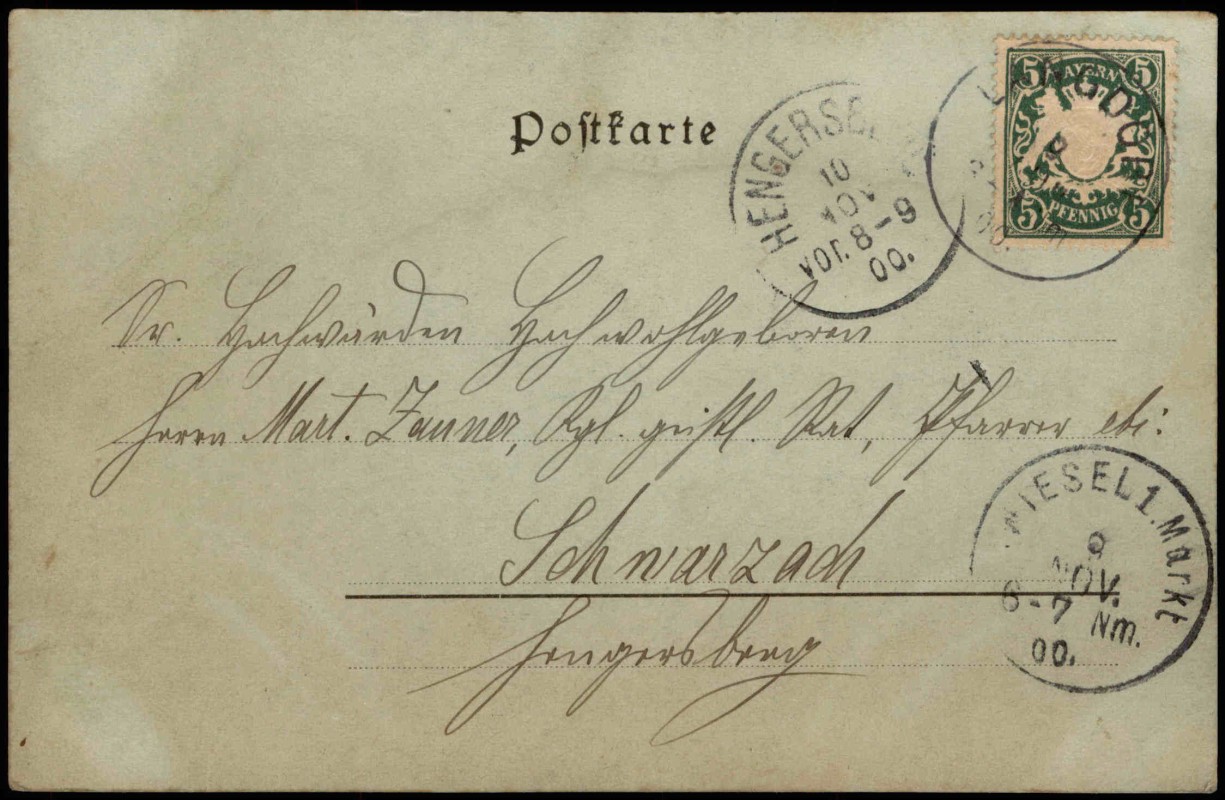 Postkarte
HENGERSBE
10
NOV
Vor. 8-9
00.
5 BAYERN 5
5 PFENNIG 5
NGDORF
00.
Sr. Hochwürden Hochwohlgeboren
Herrn Mart. Zauner, Kgl. geistl. Rat, Pfarrer etc:
Schwarzach
Hengersberg
WIESEL 1. Markt
9
NOV.
6-7 Nm.
00.